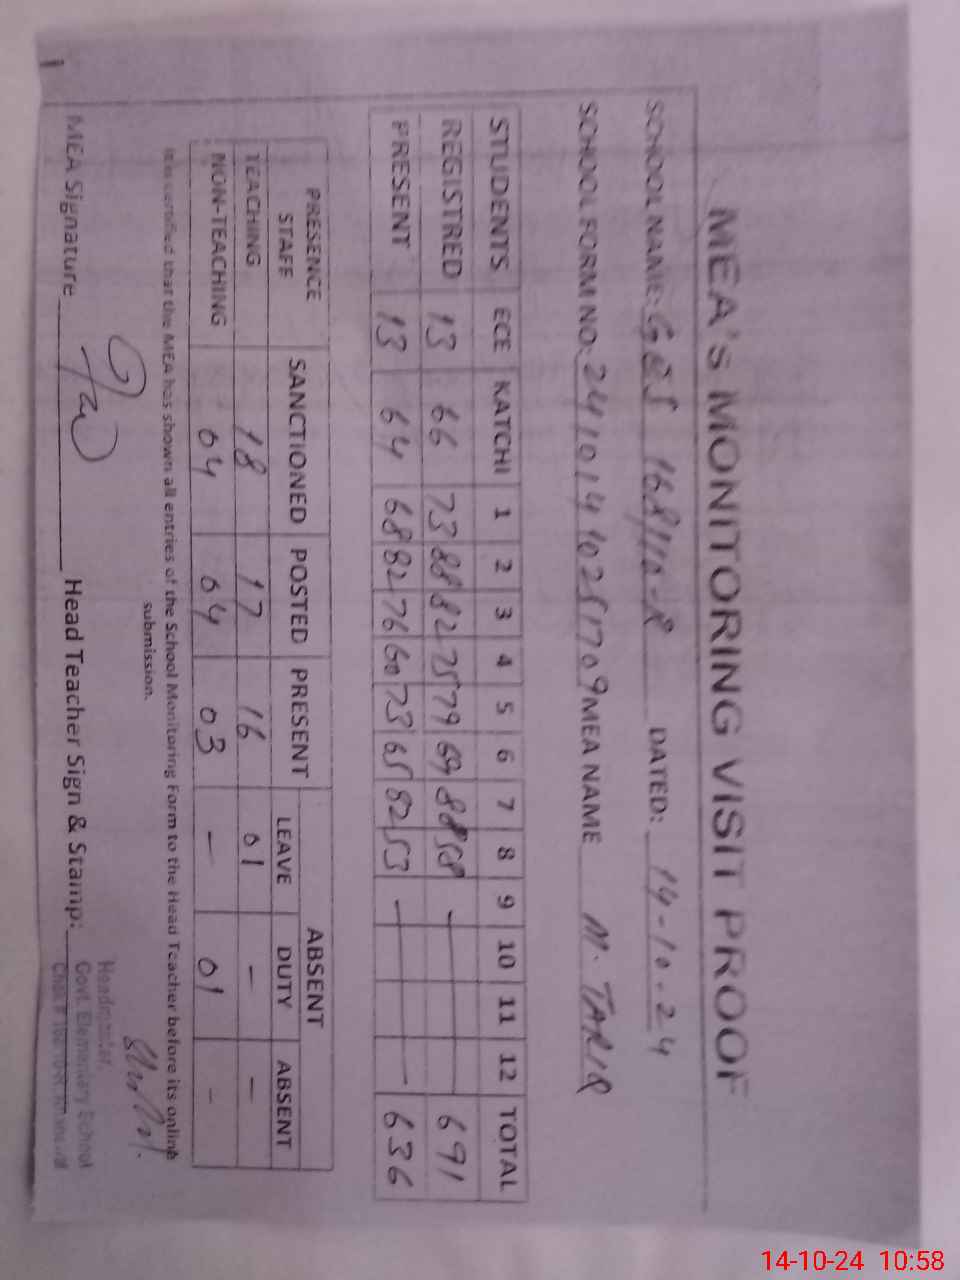 MEA's MONITORING VISIT PROOF
SCHOOL NAME: GES 168/110-R DATED: 14-10-24
SCHOOL FORM NO: 24101410251709 MEA NAME M. TARIQ
STUDENTS ECE KATCHI 1 2 3 4 5 6 7 8 9 10 11 12 TOTAL
REGISTRED 13 66 73 88 82 75 79 69 88 58 — 691
PRESENT 13 64 68 82 76 60 73 65 82 53 — 636
PRESENCE STAFF SANCTIONED POSTED PRESENT ABSENT
LEAVE DUTY ABSENT
TEACHING 18 17 16 01 - -
NON-TEACHING 04 04 03 - 01 -
It is certified that the MEA has shown all entries of the School Monitoring Form to the Head Teacher before its online
submission.
MEA Signature Head Teacher Sign & Stamp:
Headmaster,
Govt. Elementary School
14-10-24 10:58